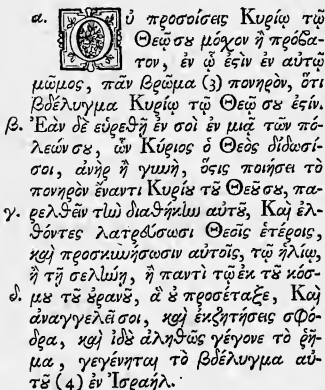 α. Οὐ προσοίσεις Κυρίῳ τῷ
Θεῷ σȣ μόχον ἢ πρόβα-
τον, ἐν ᾧ ἐϛὶν ἐν αὐτῷ
μῶμος, πᾶν ῥῆμα (3) πονηρὸν, ὅτι
βδέλυγμα Κυρίῳ τῷ Θεῷ σȣ ἐϛιν.
β. Ἐὰν δὲ εὑρεθῇ ἐν σοὶ ἐν μιᾷ τῶν πό-
λεών σȣ, ὧν Κύριος ὁ Θεὸς δίδωσί
σοι, ἀνὴρ ἢ γυνὴ, ὅϛις ποιήσει τὸ
πονηρὸν ἔναντι Κυρίȣ τȣ͂ Θεȣ͂ σȣ, πα-
γ. ρελθεῖν τὴν διαθήκην αὐτȣ͂, Καὶ ἐλ-
θόντες λατρεύσωσι Θεοῖς ἑτέροις,
καὶ προσκυνήσωσιν αὐτοῖς, τῷ ἡλίῳ,
ἢ τῇ σελήνῃ, ἢ παντὶ τῷ ἐκ τȣ͂ κόσ-
δ. μȣ τȣ͂ ȣ̓ρανȣ͂, ἃ ȣ̓ προσέταξε, Καὶ
ἀναγγελεῖ σοι, καὶ ἐκζητήσεις σφό-
δρα, καὶ ἰδȣ̀ ἀληθῶς γέγονε τὸ ῥῆ-
μα, γεγένηται τὸ βδέλυγμα αὐ-
τȣ͂ (4) ἐν Ἰσραήλ.